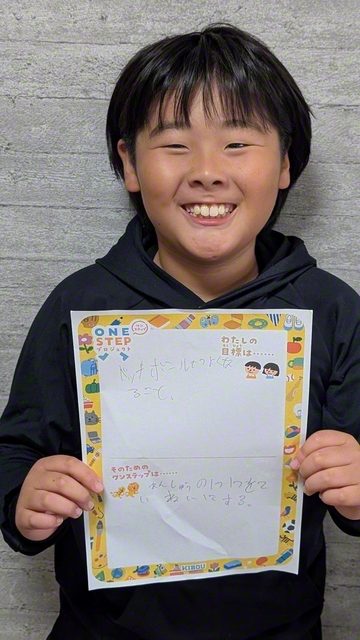 ONE
STEP
プロジェクト
わたしの
目標は……
ドッチボールつよくな
ること。
そのための
ワンステップは……
れんしゅうの1つ1つをて
いねいにする。
KIBOU